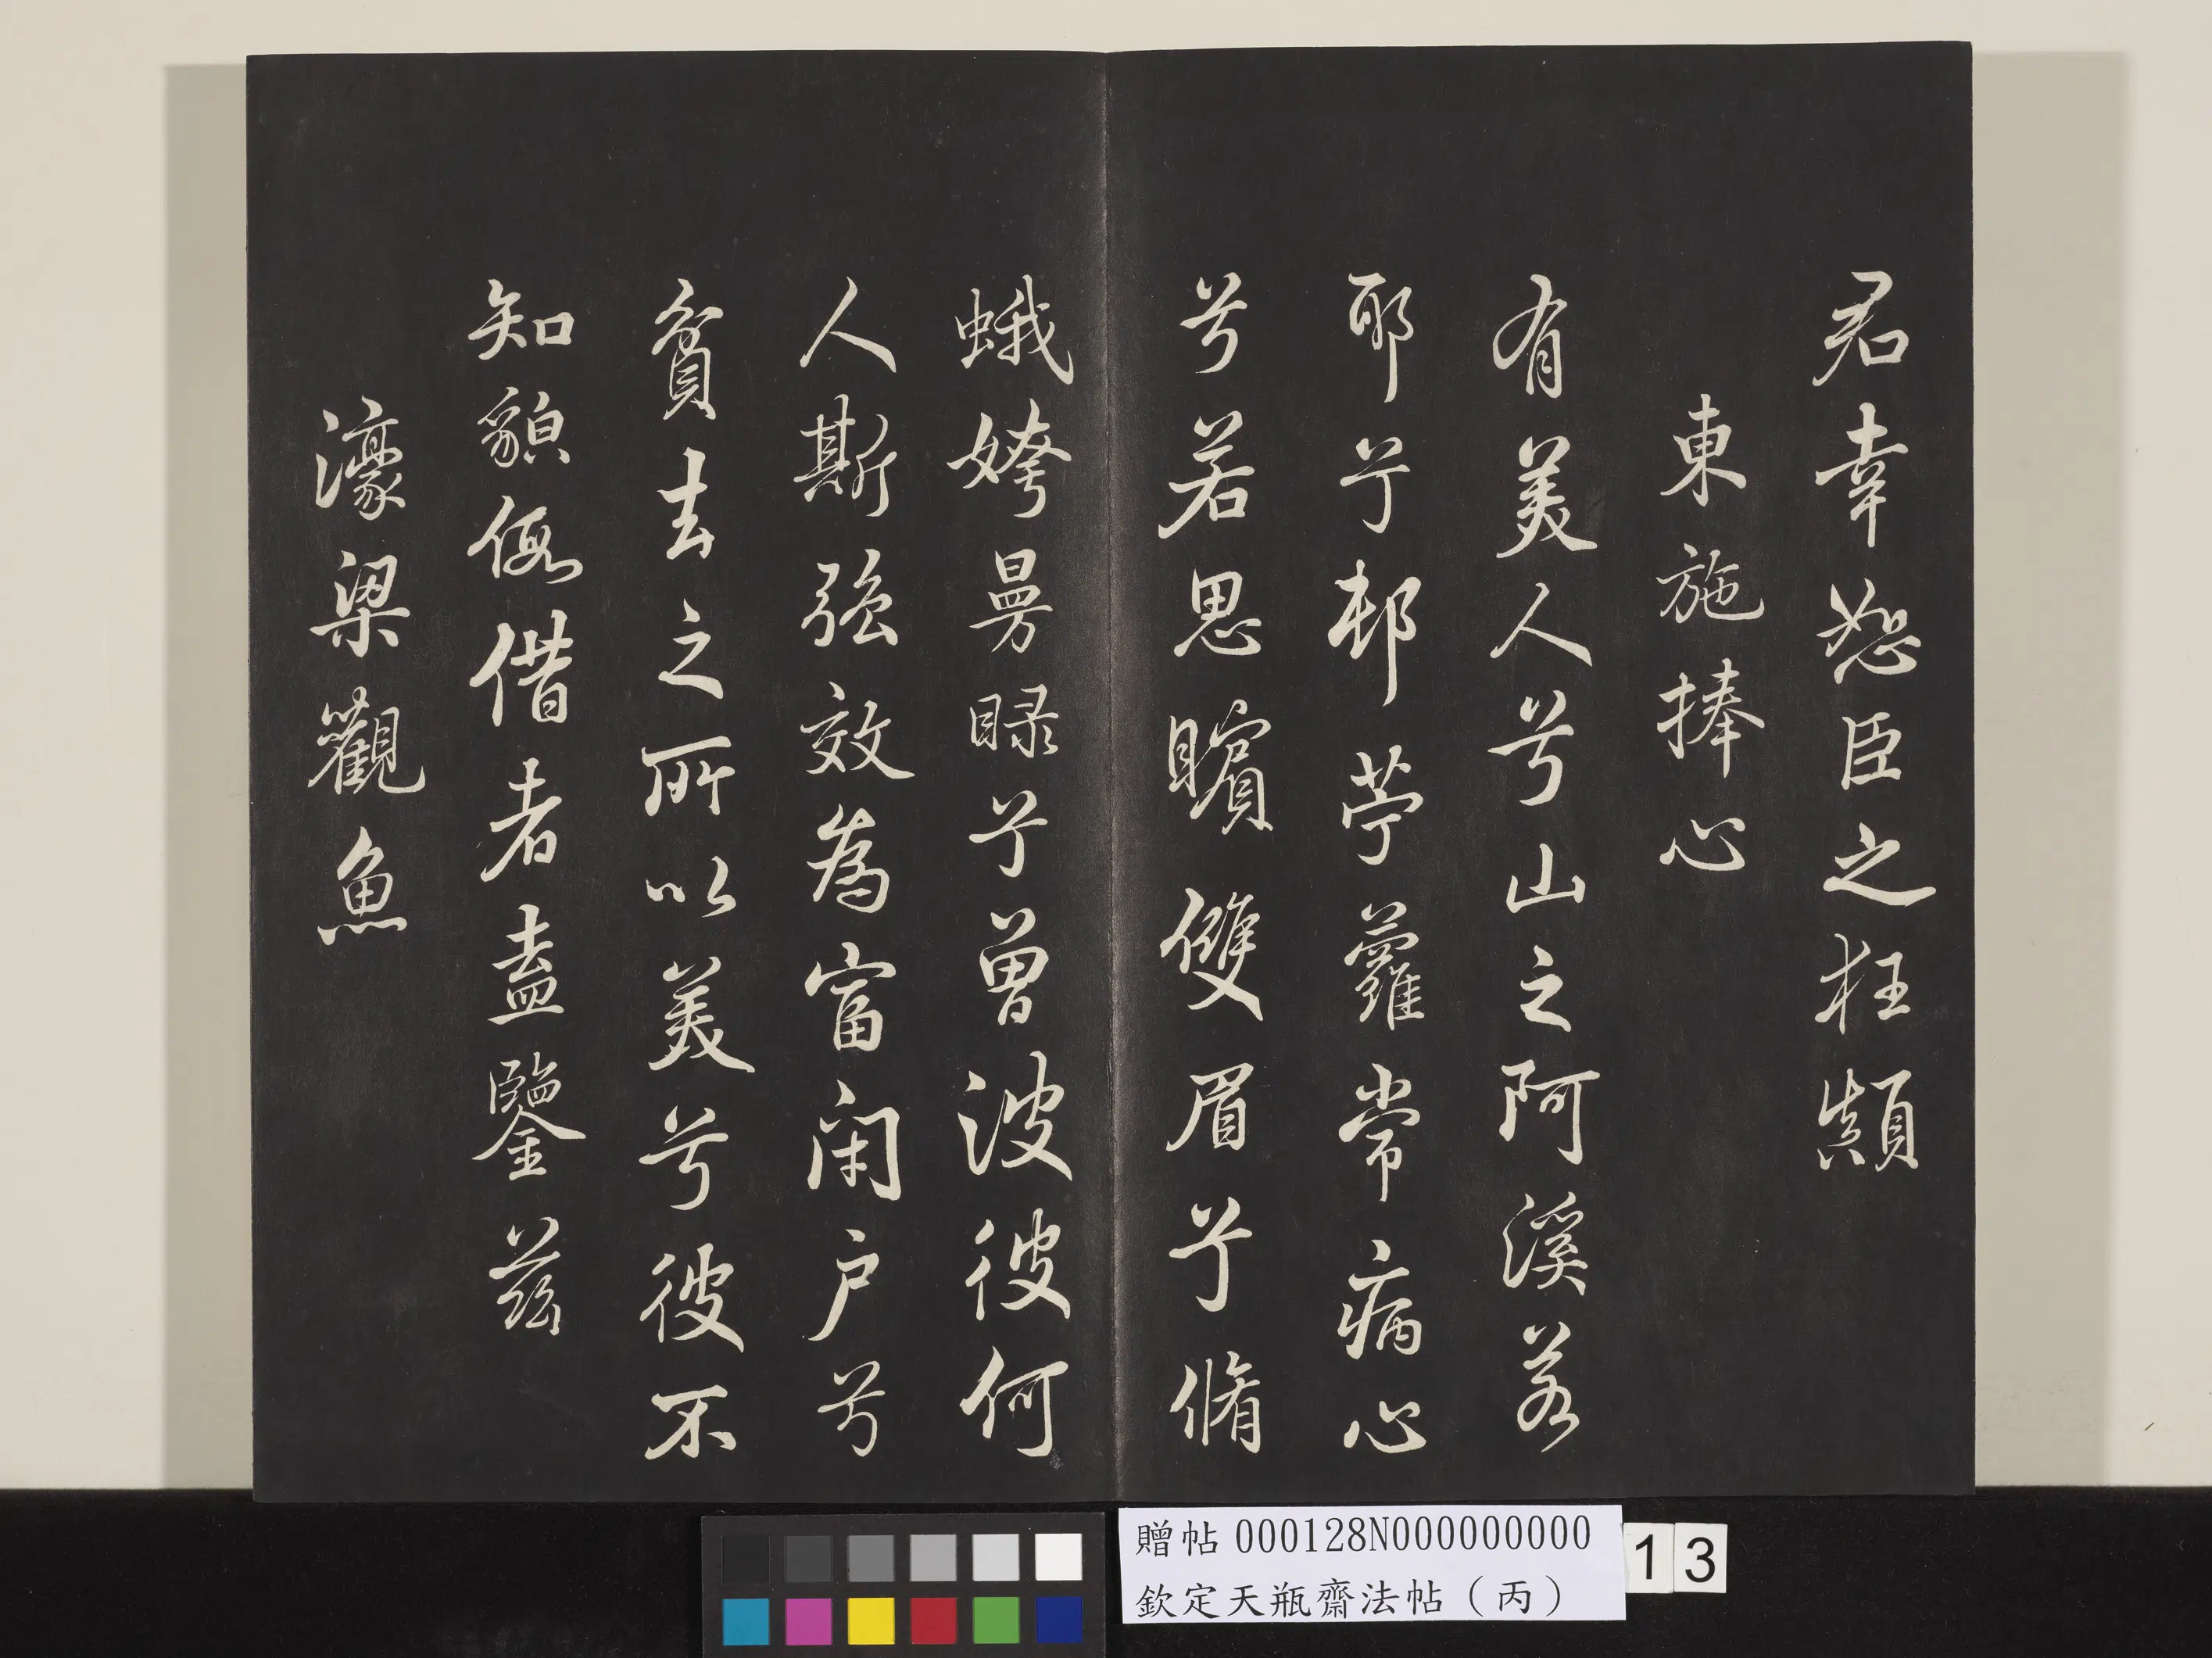 君幸恕臣之狂顛
東施捧心
有美人兮山之阿溪若
耶兮邨苧蘿常病心
兮若思矉雙眉兮脩
蛾姱曼睩兮曾波彼何
人斯強效為富閉户兮
貧去之所以美兮彼不
知貌假借者盍鑒茲
濠梁觀魚
贈帖 000128N000000000
欽定天瓶齋法帖（丙）
13